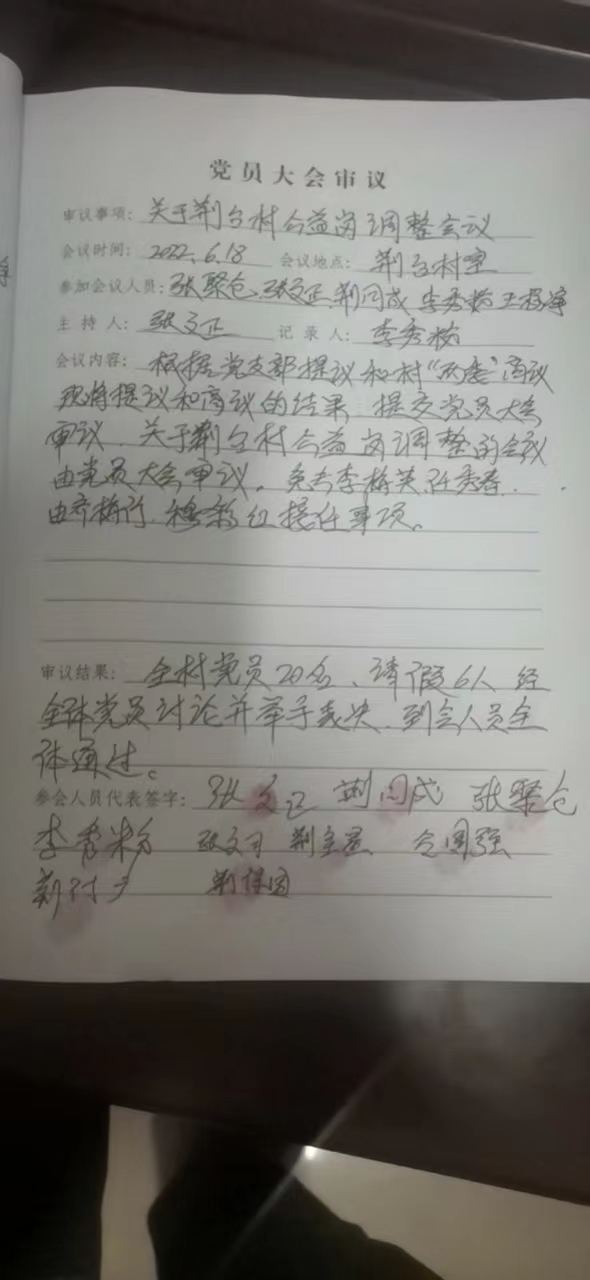 党员大会审议
审议事项：关于荆台村公益岗调整会议
会议时间：2022.6.18 会议地点：荆台村室
参加会议人员：张聚仓、张文正、荆同成 李秀粉 王
主持人：张文正 记录人：李秀粉
会议内容：根据党支部提议和村“两委”商议
现将提议和商议的结果 提交党员大会
审议．关于荆台村公益岗调整的会议
由党员大会审议．免去李梅英 任秀春．
由 接任事项。
审议结果：全村党员20名、请假6人 经
全体党员讨论并举手表决．到会人员全
体通过。
参会人员代表签字：张文正 荆同成 张聚仓
李秀粉